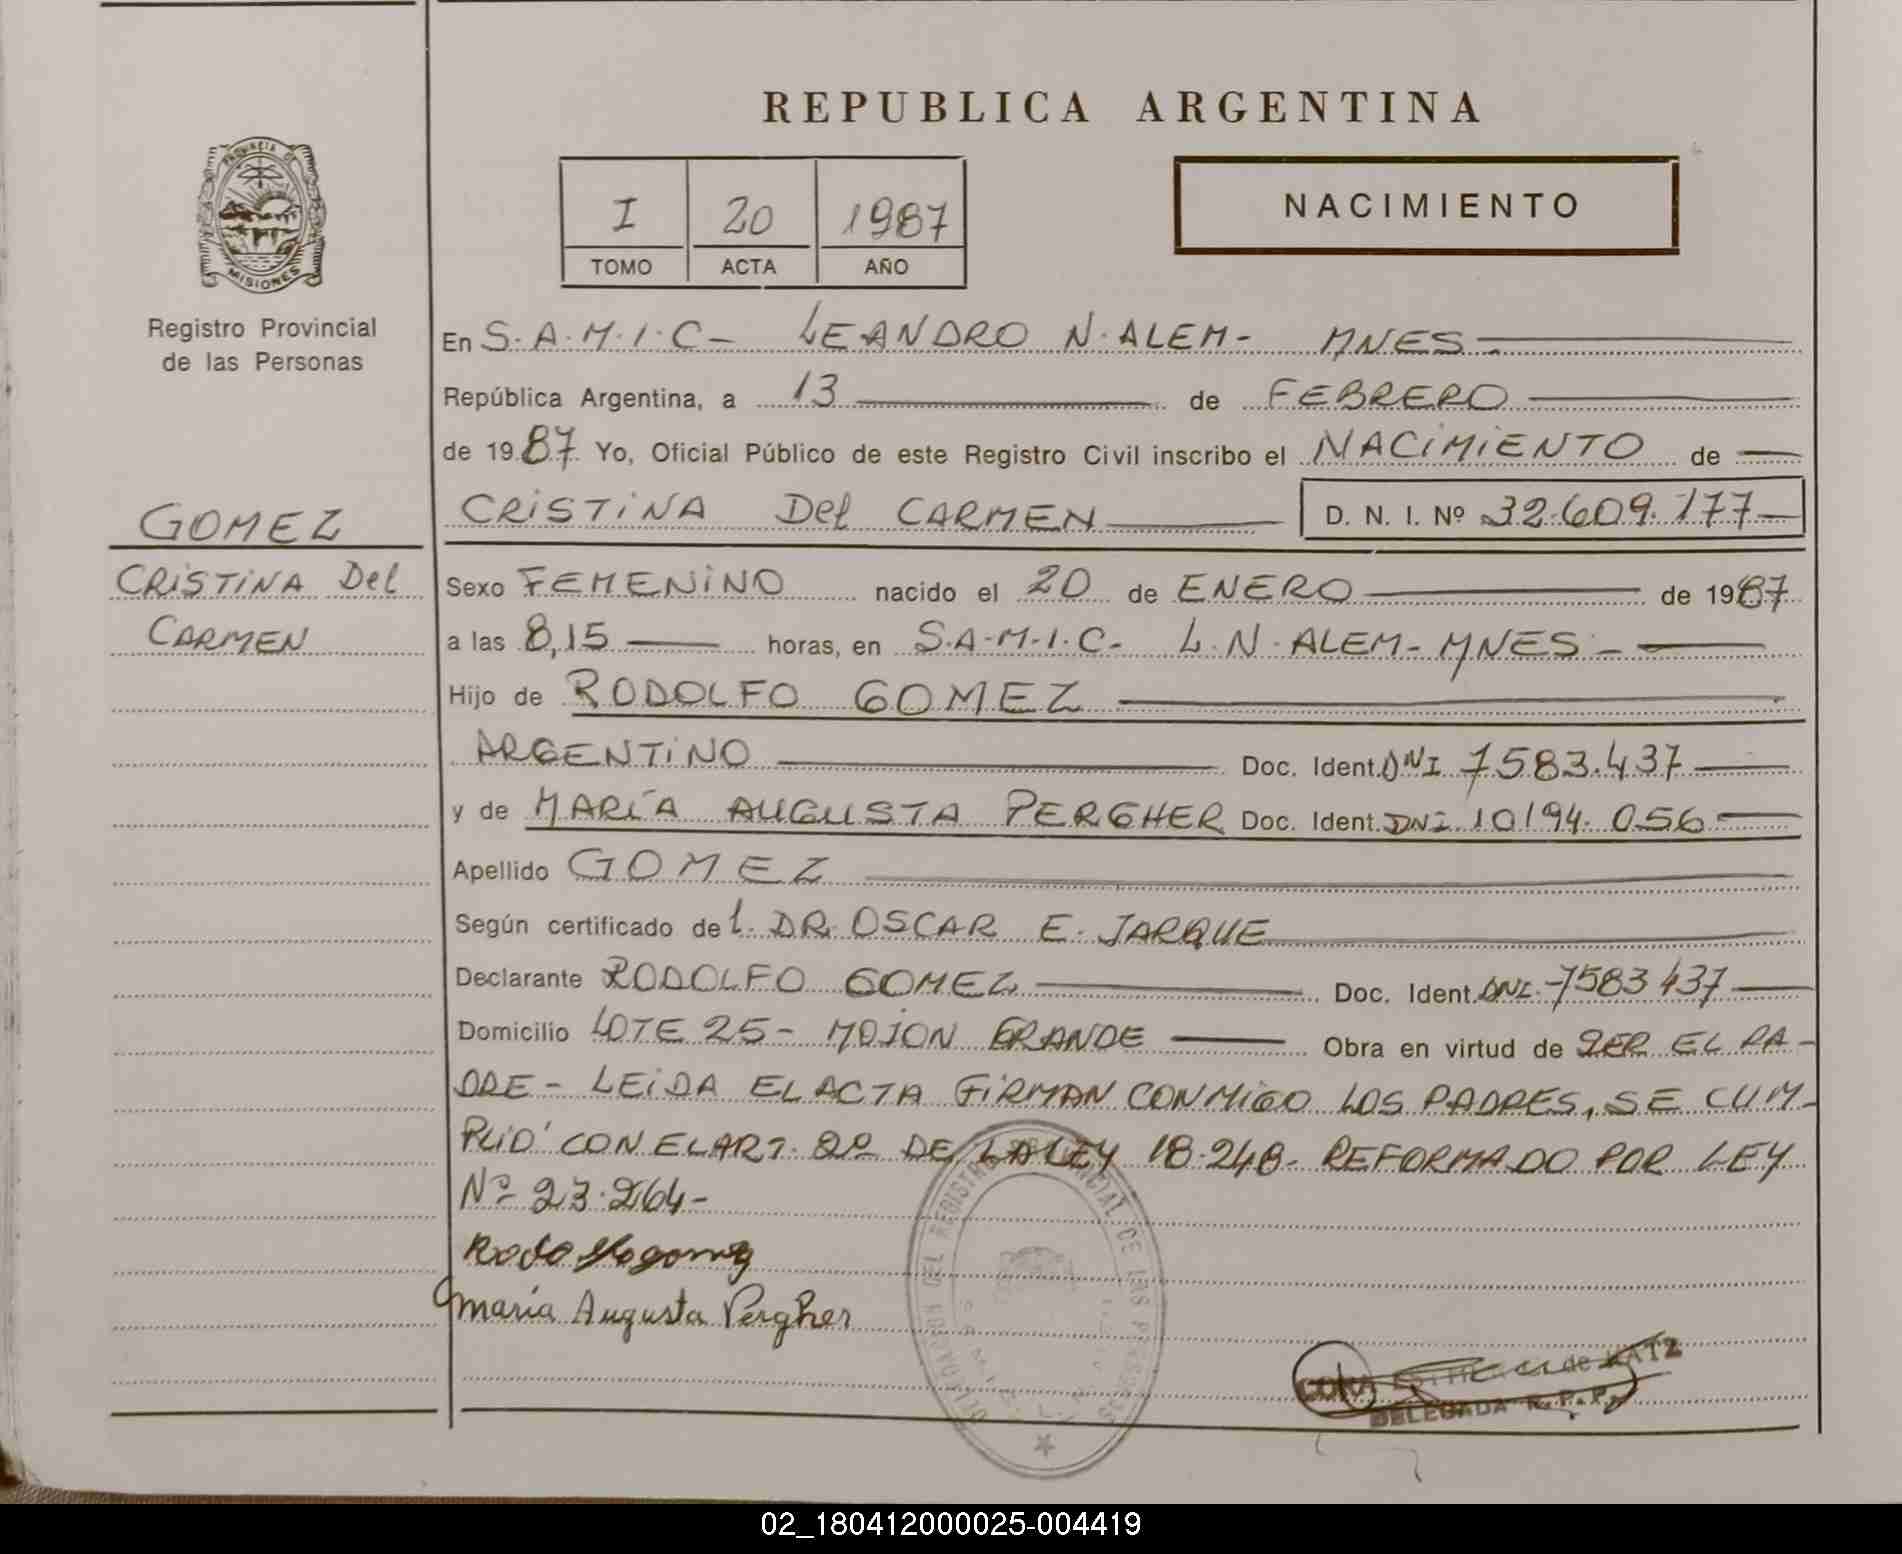 REPUBLICA ARGENTINA
PROVINCIA DE
MISIONES
Registro Provincial
de las Personas
I 20 1987
TOMO ACTA AÑO
NACIMIENTO
En S.A.M.I.C- LEANDRO N. ALEM- MNES-
República Argentina, a 13 de FEBRERO
de 1987. Yo, Oficial Público de este Registro Civil inscribo el NACIMIENTO de
GOMEZ
CRISTINA Del
CARMEN
CRISTINA Del CARMEN D. N. I. Nº 32.609.177
Sexo FEMENINO nacido el 20 de ENERO de 1987
a las 8,15 horas, en S.A.M.I.C- L.N. ALEM- MNES-
Hijo de RODOLFO GOMEZ
ARGENTINO Doc. Ident. DNI 7583.437
y de MARÍA AUGUSTA PERGHER Doc. Ident. DNI 10194.056
Apellido GOMEZ
Según certificado del DR. OSCAR E. JARQUE
Declarante RODOLFO GOMEZ Doc. Ident. DNI 7583437
Domicilio LOTE 25- MOJON GRANDE Obra en virtud de SER EL PA-
DRE- LEIDA EL ACTA FIRMAN CONMIGO LOS PADRES, SE CUM-
PLIO' CON EL ART. 2º DE LA LEY 18.248- REFORMADO POR LEY
Nº 23.264-
Rodolfo gomez
maria Augusta Pergher
de KATZ
DELEGADA R.P.P.
02_180412000025-004419